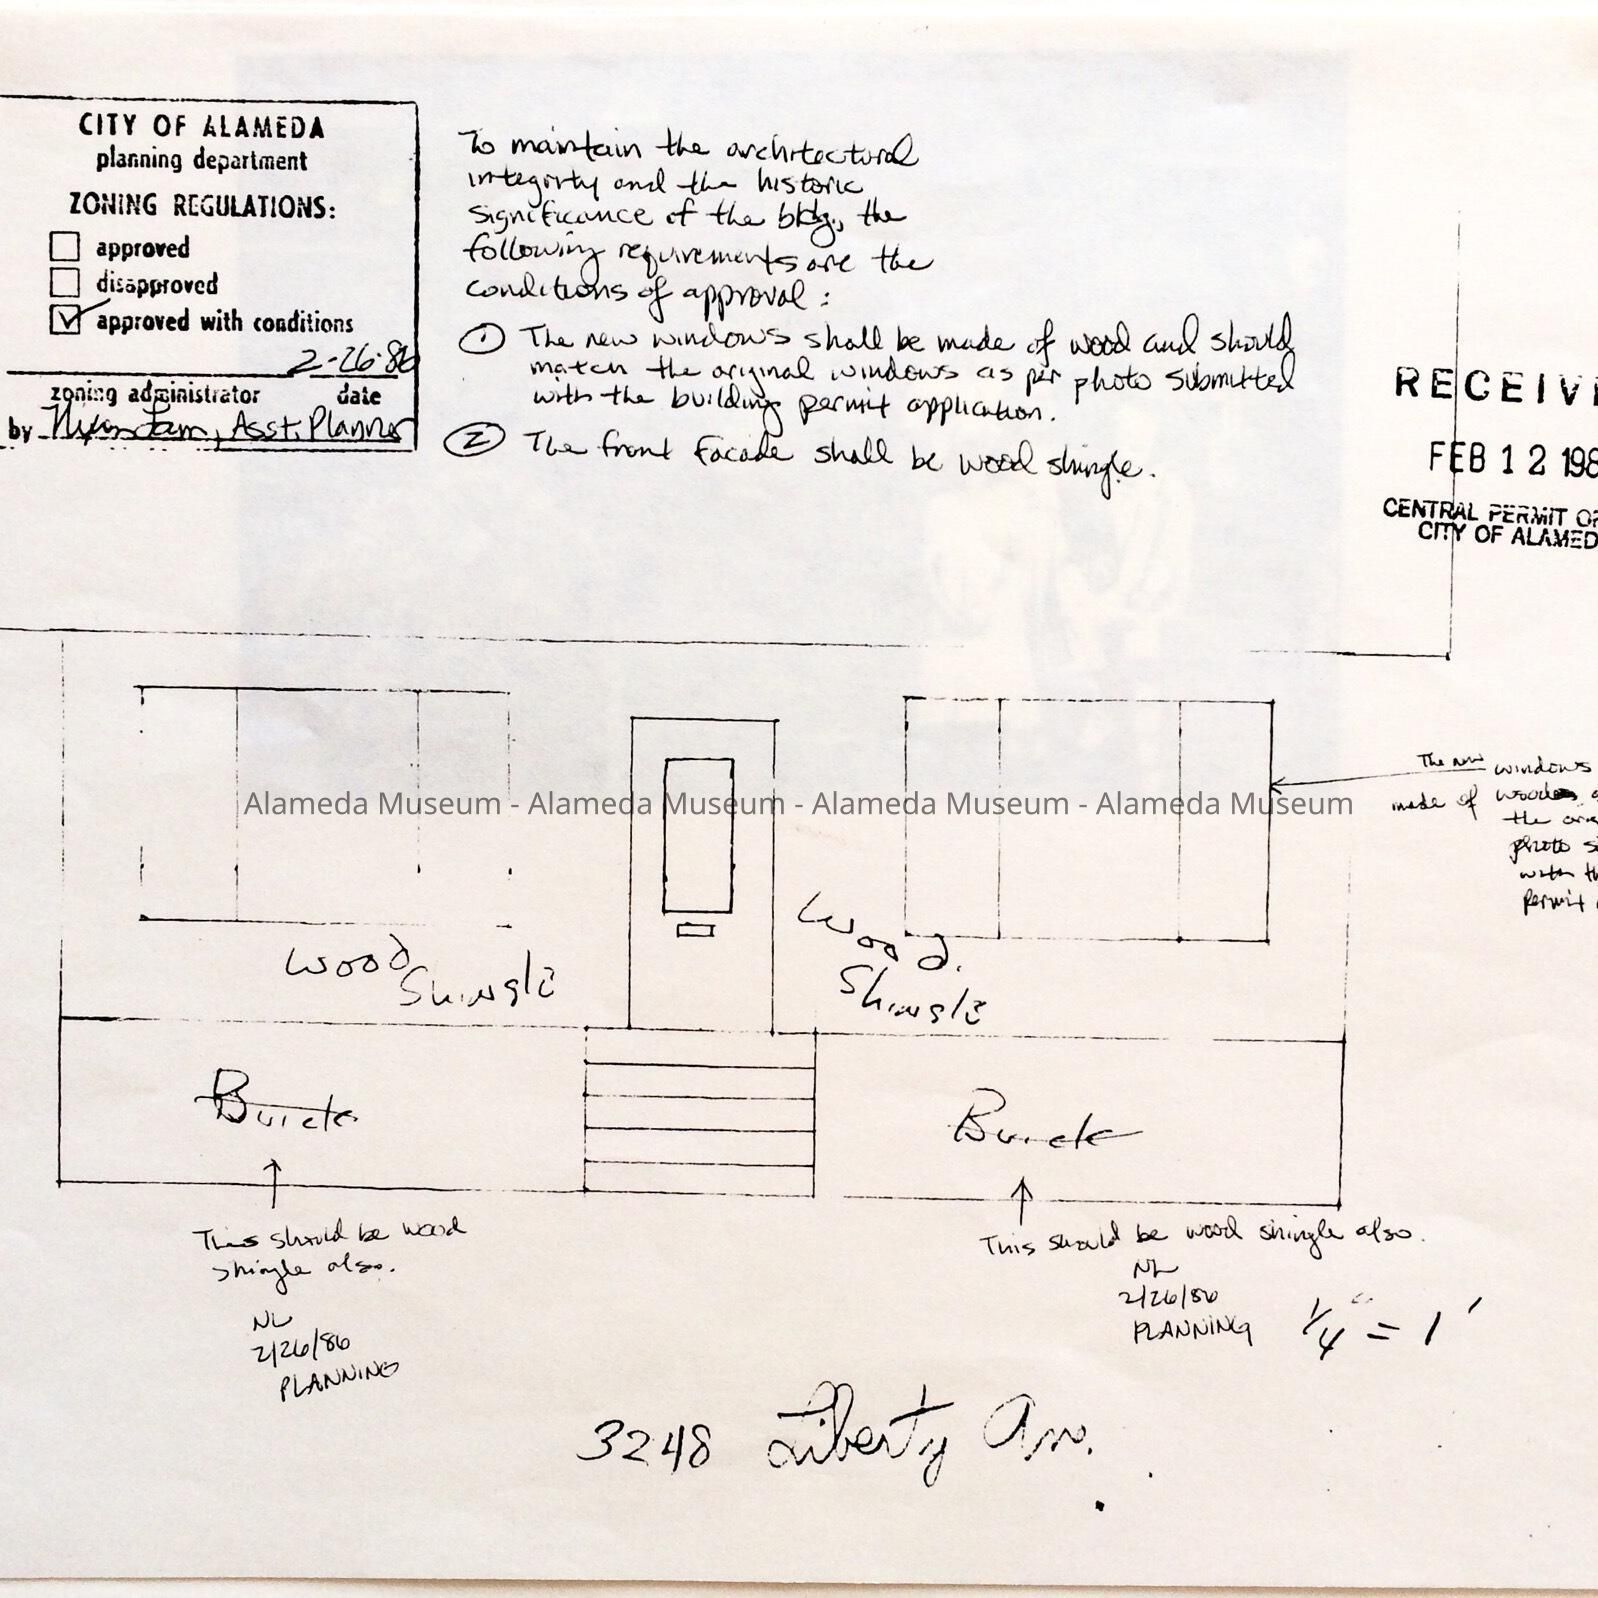 CITY OF ALAMEDA
planning department
ZONING REGULATIONS:
approved
disapproved
approved with conditions
2-26-86
zoning administrator date
by Asst. Planner
To maintain the architectural
integrity and the historic
significance of the bldg., the
following requirements are the
conditions of approval:
1 The new windows shall be made of wood and should
match the original windows as per photo submitted
with the building permit application.
2 The front facade shall be wood shingle.
RECEIV
FEB 12 198
CENTRAL PERMIT OF
CITY OF ALAMED
The new windows
made of
the
photo
with
permit
Alameda Museum - Alameda Museum - Alameda Museum - Alameda Museum
Wood
Shingle
Wood
Shingle
Brick
Brick
This should be wood
shingle also.
NL
2/26/86
PLANNING
This should be wood shingle also.
NL
2/26/86
PLANNING
1/4" = 1'
3248 Liberty Ave.